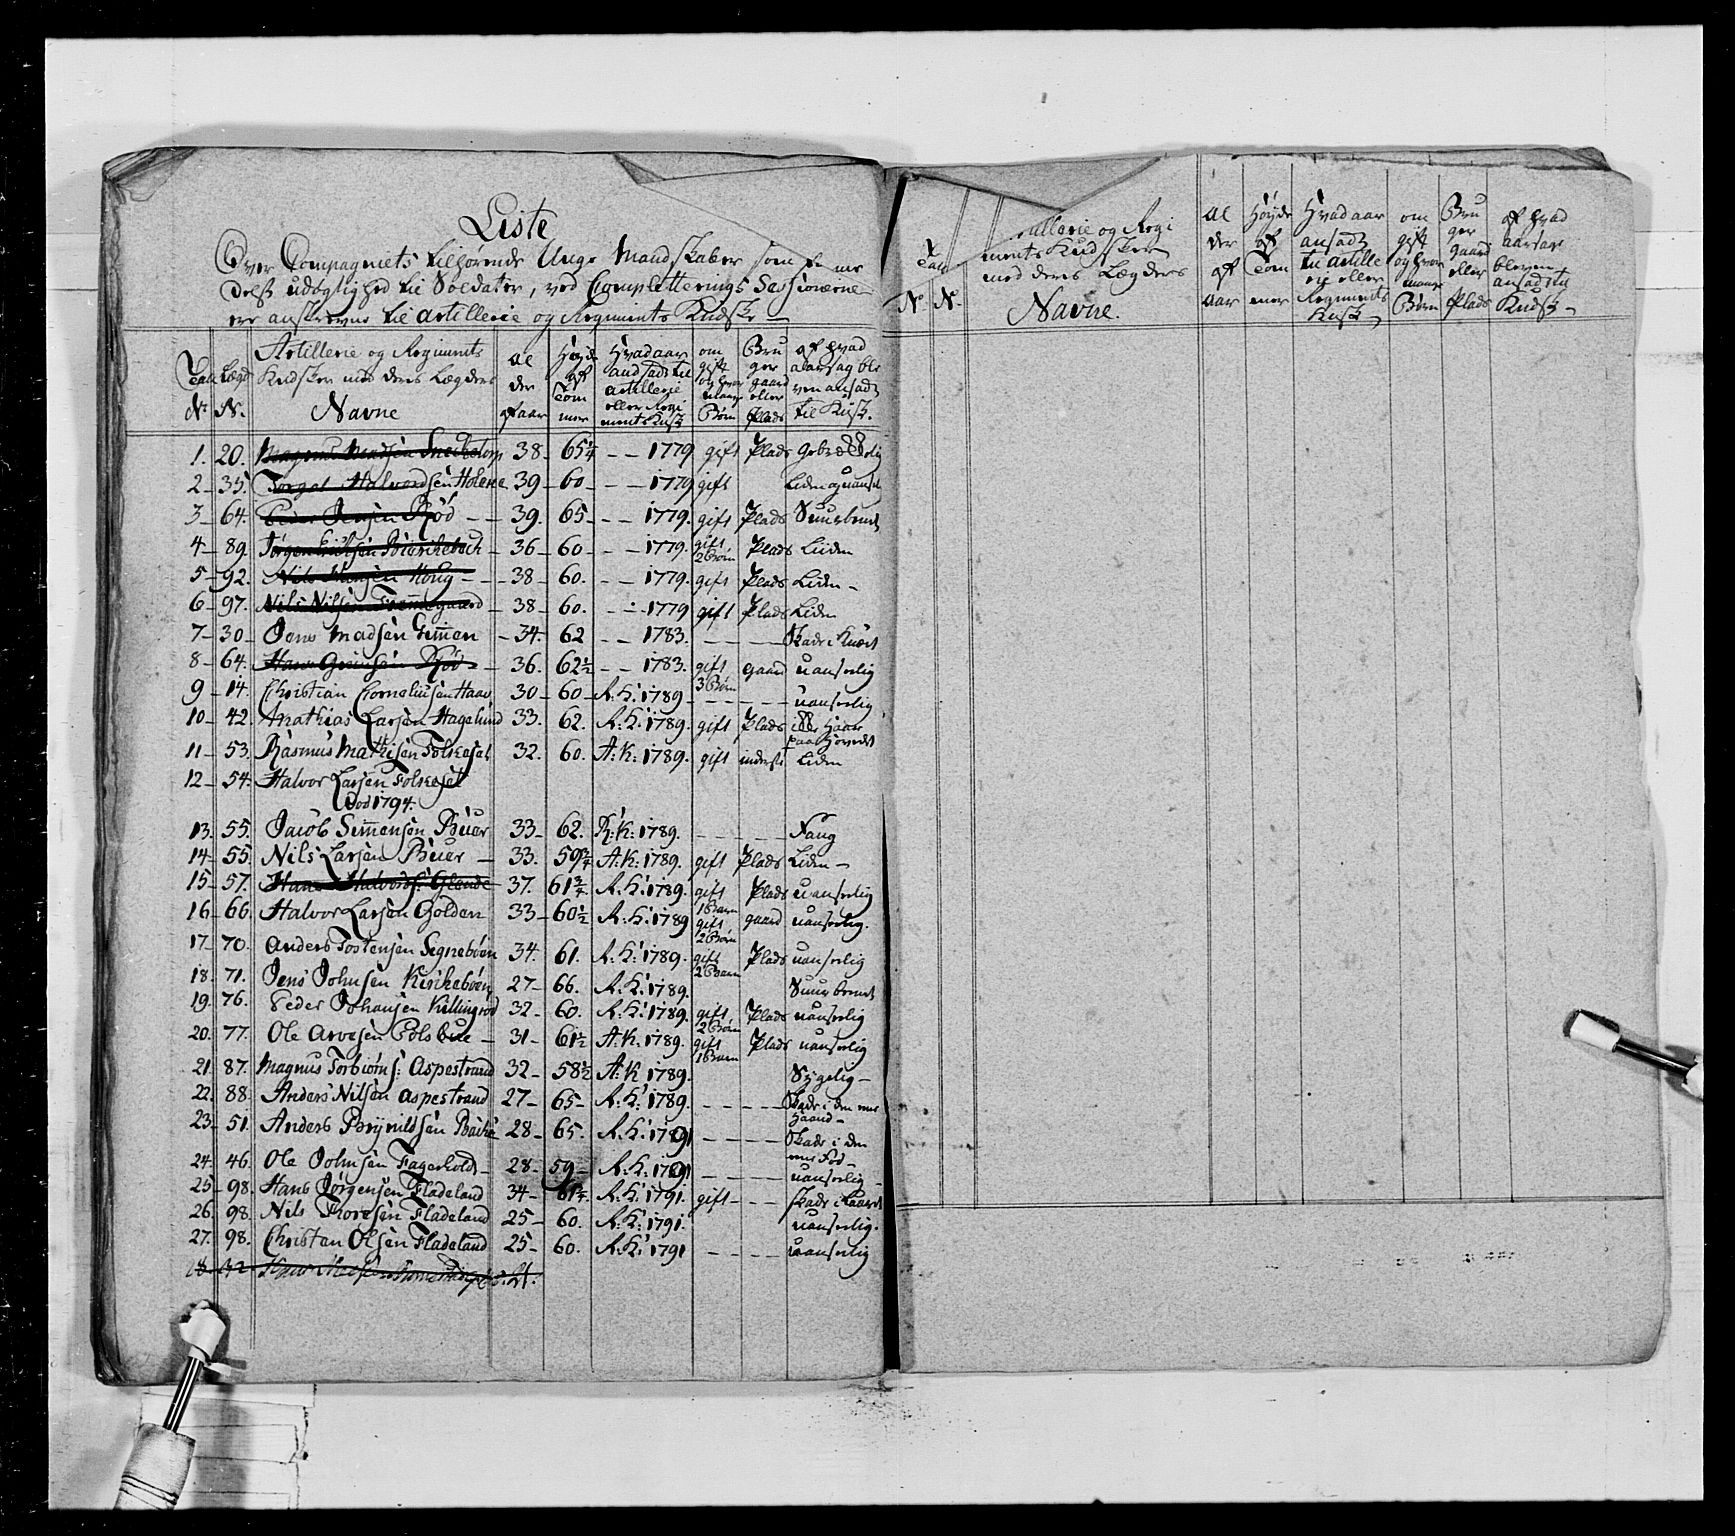 Liste
Over Compagniets tilhørende Unge Mandskaber som for me
delst udøglighed til Soldater, ved Completterings Sessionerne
ere anskrevne til artillerie og Regiments Kudske
Tall No. Lægd No. Artillerie og Regiments Kudsker med deres Lægders Navne Al der af aar Høyde af Tom mer Hvad aar andsadt til artillerie eller Regi ments Kusk om gift og hvor mange Børn Bru ger gaard eller Plads af hvad aarsag ble ven ansadt til Kusk.
1. 20. Magnus Madsen 38 65¼ 1779 gift Plads
2 35. Torgal Halvordsen Holene 39 60 1779 gift
3 64. Peder Jensen Röd 39. 65 1779. gift Plads Suurbeent
4 89. Jørgen 36 60 1779. gift 2 Børn Plads Liiden
5 92. Nils Hansen Houg 38 60. 1779. gift Plads Liden
6 97. Nils Nilsen 38 60. 1779 gift Plads Liden
7 30 Jens Madsen 34 62 1783. Skade i Knæet
8 64. Hans Röd 36. 62½ 1783. gift 3 Børn gaard uanseelig
9 14. Christian Corneliusen Haav 30 60 R:K: 1789 uanseelig
10 42. Mathias Larsen Hagelund 33. 62. R:K: 1789. gift Plads Haar paa Hovedet
11 53. Rasmus Mathisen Folkesel 32. 60. A:K: 1789. gift inderst Liden
12 54. Halvor Larsen Folkesel
Död 1794.
13. 55. Jacob Simensen Bier 33 62. R:K: 1789.
14 55. Nils Larsen Bier 33. 59¾ A:K: 1789. gift Plads Liden
15 57. Hans Halvords: Glende 37. 61¾ R:K: 1789. gift 1 Barn Plads uanseelig
16 66. Halvor Larsen Golden 33 60½ R:K: 1789 gift 2 Børn gaard uanseelig.
17 70. Anders Tostensen Segneböen 34. 61. R:K: 1789. gift 2 Barn Plads uanseelig
18. 71. Jens Johnsen Kirkeböen 27 66. R:K: 1789. Suurbeent
19. 76. Peder Johansen Killingröd 32 60. R:K: 1789. gift 2 Børn Plads uanseelig
20. 77. Ole Arvesen 31 61½ A:K. 1789. gift 1 Barn Plads uanseelig
21. 87. Magnus Torbiörns: Aspestrand 32 58½ A:K 1789. Sygelig
22. 88. Anders Nilsen Aspestrand 27 65 R:K: 1789. Skade i den ene Haand
23 51. Anders Brynildsen 28 65. R:K: 1791 Skade i den ene Fod
24. 46. Ole Johnsen Fagerholt 28 59 R:K: 1791 uanseelig
25 98. Hans Jørgensen Fladeland 34 R:K: 1791. gift Skade i
26. 98. Nils Toresen Fladeland 25 60. R:K: 1791. uanseelig.
27. 98. Christen Olsen Fladeland 25 60. R:K: 1791 uanseelig
Tall
No. No. Artillerie og Regi ments Kudsker med deres Lægders Navne. Al der af aar Høyde af Tom mer Hvad aar ansadt til artille rie eller Regiments Kusk om gift og hvor mange Børn Bru ger gaard eller Plads af hvad aarsag bleven ansadt til Kudsk